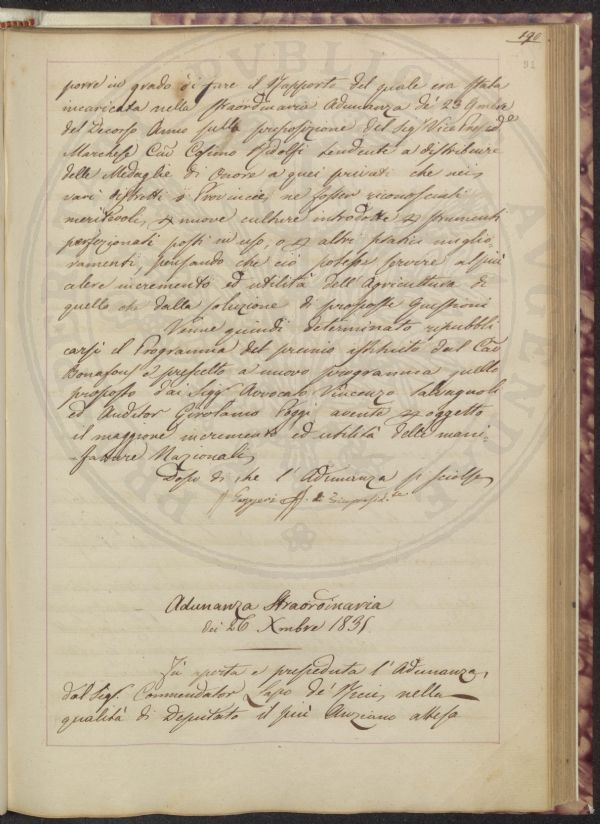 190
91
porre in grado di fare il Rapporto del quale era stata
incaricata nella straordinaria Adunanza de' 23
del Decorso Anno sulla proposizione del Sigr Vice Presid.e
Marchese Cav Cosimo Ridolfi tendente a distribuire
delle Medaglie di Onore a quei privati che nei
vari distretti o Provincie, ne fosser riconosciuti
meritevoli, nuove culture introdotte strumenti
perfezionati posti in uso, o altri pratici miglio-
ramenti, pensando che ciò potesse servire assai più
a dare incremento ed utilità dell'Agricoltura di
quello che dalla soluzione di proposte Questioni
Venne quindi determinato ripubbli
carsi il Programma del premio istituito dal Cav
Bonafous e prescelto a nuovo programma quello
proposto dai Sigg Avvocato Vincenzo Salvagnoli
ed Auditor Girolamo Poggi avente oggetto
il maggiore incremento ed utilità delle mani-
-fatture Nazionali,
Dopo di che l'Adunanza si sciolse,
Adunanza Straordinaria
dei 26 Xmbre 1831
Fù aperta e preseduta l'Adunanza,
dal Sigr Commendator Lapo de' Ricci, nella
qualità di Deputato il più Anziano attesa